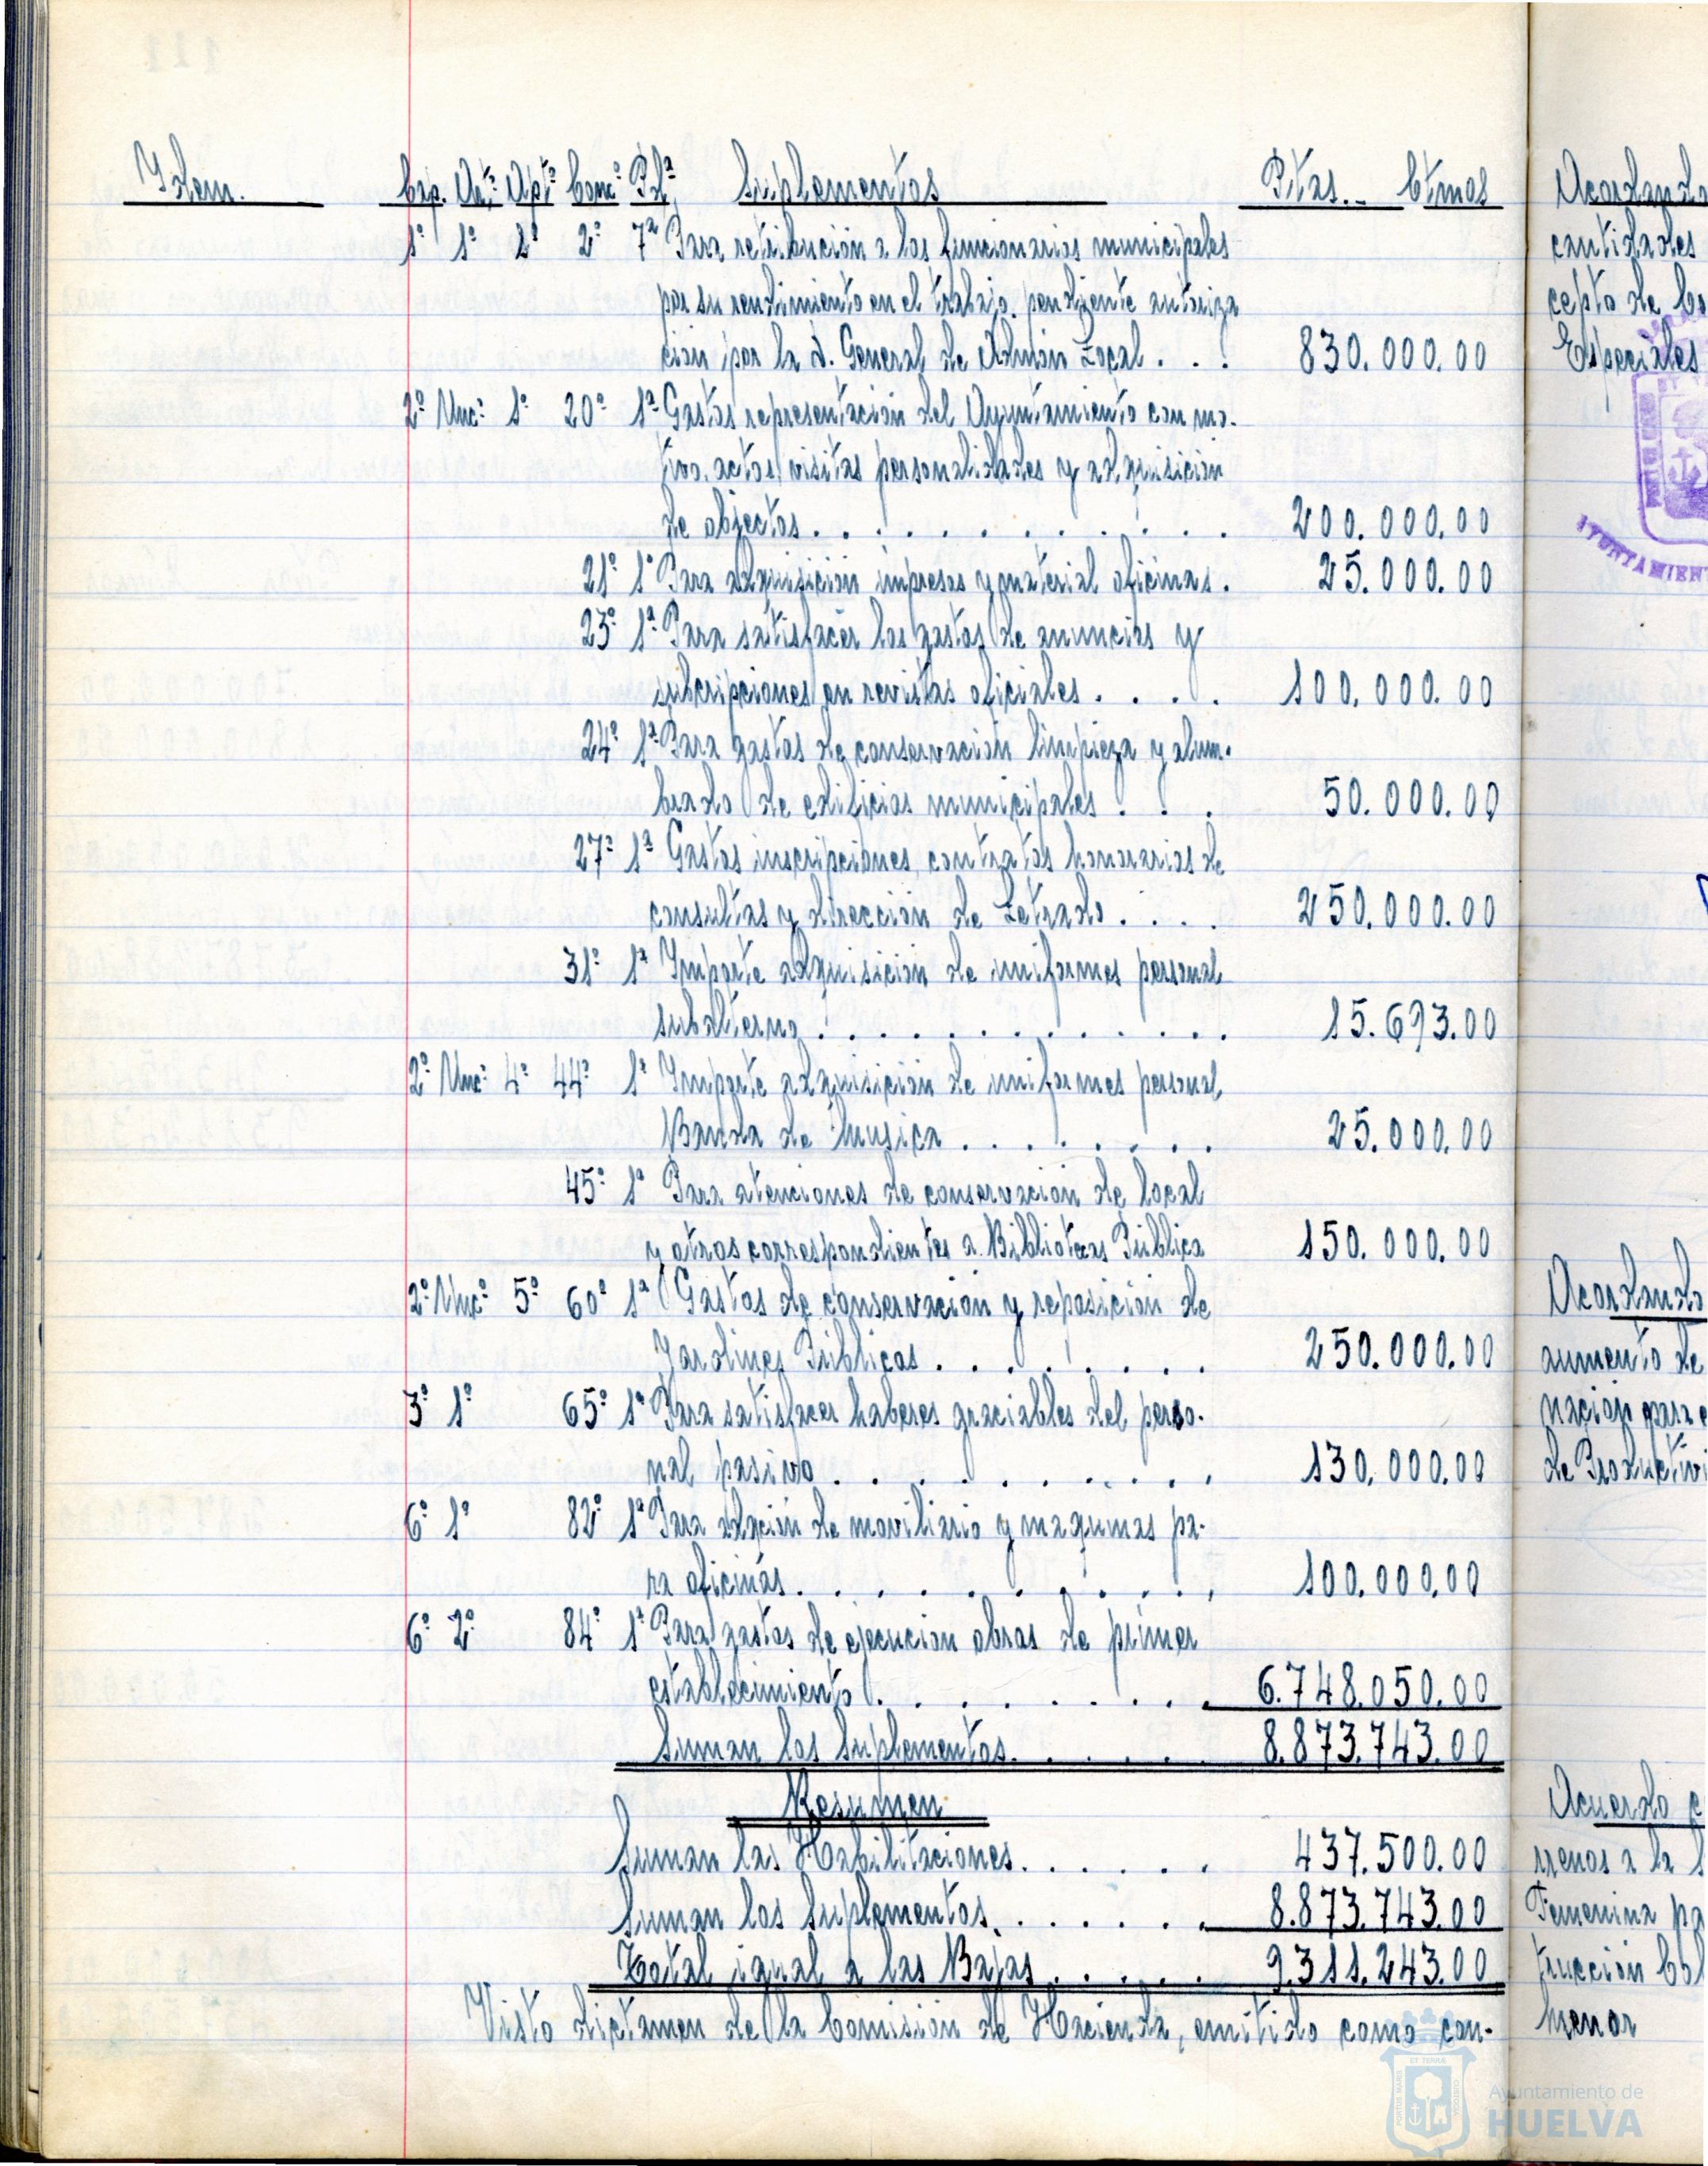 Idem. Cap. Art. Apt. Conc. Pda. Suplementos Ptas. Ctmos
1º 1º 2º 2º 7ª Para retribución a los funcionarios municipales
por su rendimiento en el trabajo, pendiente autoriza
ción por la D. General de Admón Local . . . 830.000.00
2º Unc: 1º 20º 1ª Gastos representación del Ayuntamiento con mo-
tivo, actos, visitas personalidades y adquisición
de objectos . . . . . . . . . . . 200.000.00
21º 1ª Para adquisición impresos y material oficinas. 25.000.00
23º 1ª Para satisfacer los gastos de anuncios y
subcripciones en revistas oficiales . . . . 100.000.00
24º 1ª Para gastos de conservación limpieza y alum-
brado de edificios municipales . . . 50.000.00
27º 1ª Gastos inscripciones, contratos honorarios de
consultas y dirección de Letrado . . . . 250.000.00
31º 1ª Importe adquisición de uniformes personal
subalterno . . . . . . . . . . . . 15.693.00
2º Unc: 4º 44º 1ª Importe adquisición de uniformes personal
Banda de Música . . . . . . . . 25.000.00
45º 1ª Para atenciones de conservación de local
y otros correspondientes a Bibliotecas Pública 150.000.00
2º Unc: 5º 60º 1ª Gastos de conservación y reposición de
Jardines Públicos . . . . . . . . 250.000.00
3º 1º 65º 1ª Para satisfacer haberes graciables del perso-
nal pasivo . . . . . . . . . . 130.000.00
6º 1º 82º 1ª Para adación de moviliario y maquinas pa-
ra oficinas . . . . . . . . . . . 100.000.00
6º 2º 84º 1ª Para gastos de ejecución obras de primer
establecimiento . . . . . . . . . 6.748.050.00
Suman los Suplementos . . . . . 8.873.743.00
Resumen
Suman las Habilitaciones . . . . . . 437.500.00
Suman los Suplementos . . . . . . 8.873.743.00
Total igual a las Bajas . . . . . 9.311.243.00
Visto dictamen de la Comisión de Hacienda, emitido como con-
Acordando
cantidades
cepto de
Especiales
AYUNTAMIEN
Acordando
aumento de
nación para
de Productivi
Acuerdo
rrenos a la S
Femenina pa
trucción Col
menor
Ayuntamiento de
HUELVA